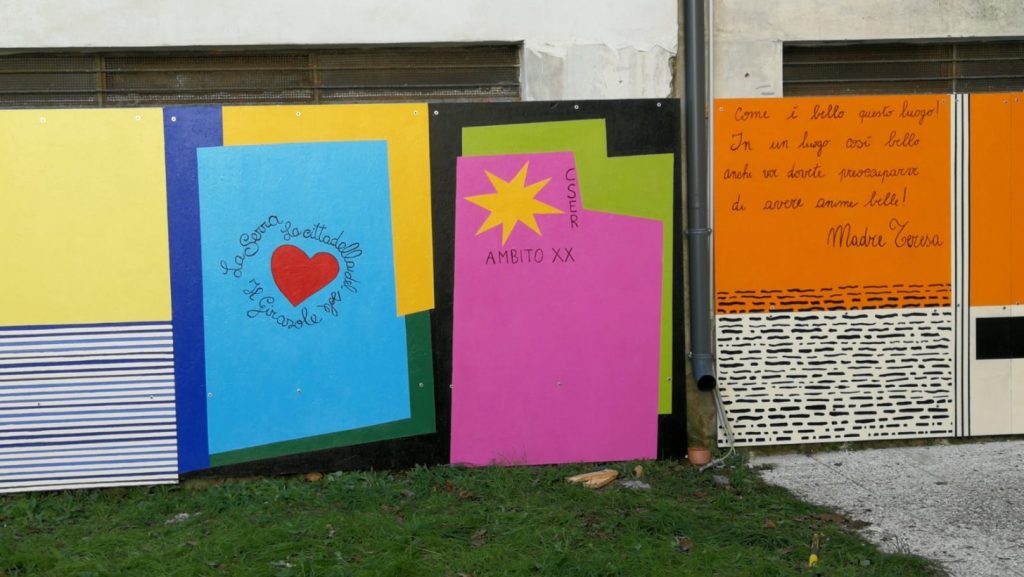 La Cerra
La cittadella del sole
Il Girasole
CSER
AMBITO XX
Come è bello questo luogo!
In un luogo così bello
anche voi dovete preoccuparvi
di avere anime belle!
Madre Teresa